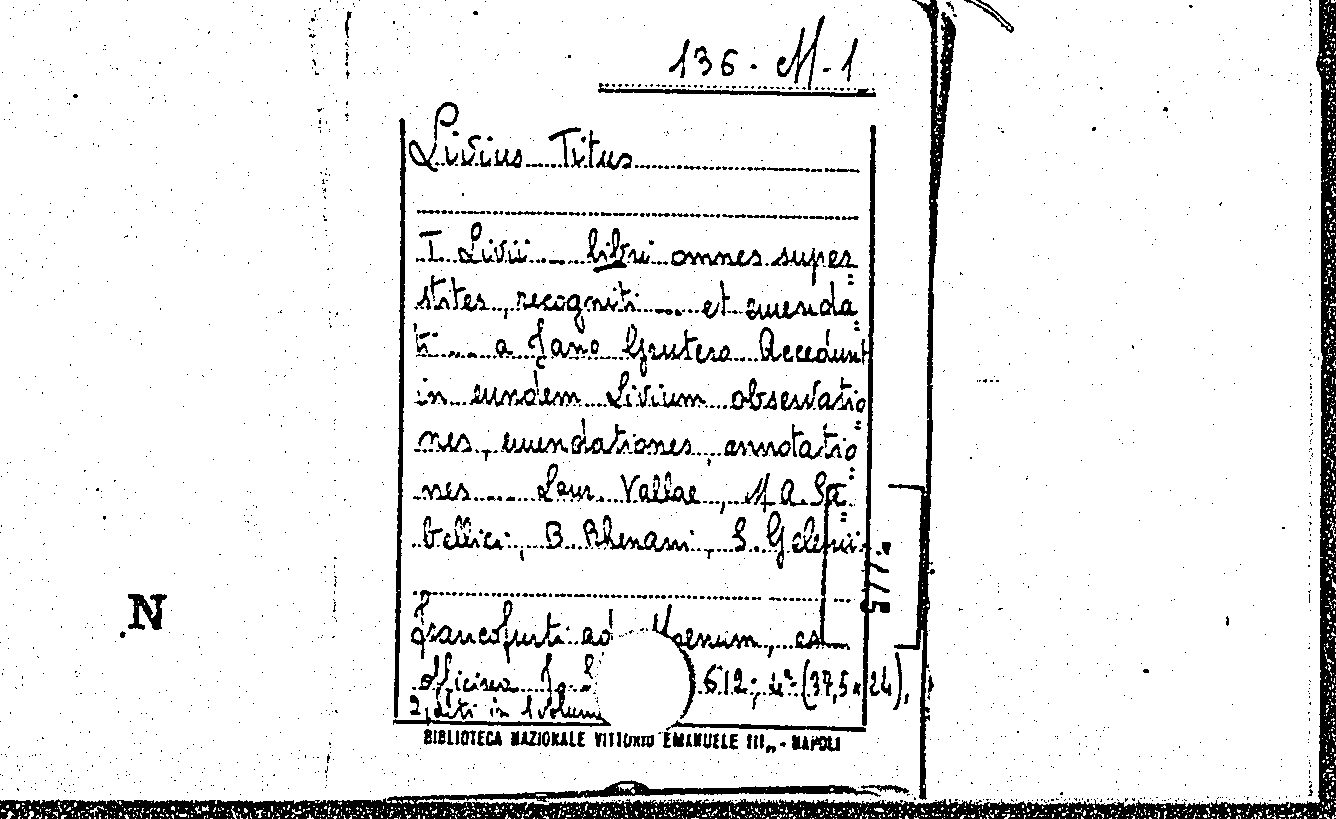 136 - M - 1
Livius Titus
T. Livii ... libri omnes super
stites, recogniti ... et emenda
ti ... a Jano Grutero Accedunt
in eundem Livium observatio
nes, emendationes, annotatio
nes ... Laur. Vallae, M A. Sa
bellici, B Rhenani, S. Gelenii
Francofurti ad Moenum, ex
officina Jo. 612; 4° (37,5 x 24),
2, in 1 volum
BIBLIOTECA NAZIONALE VITTORIO EMANUELE III„ - NAPOLI
N